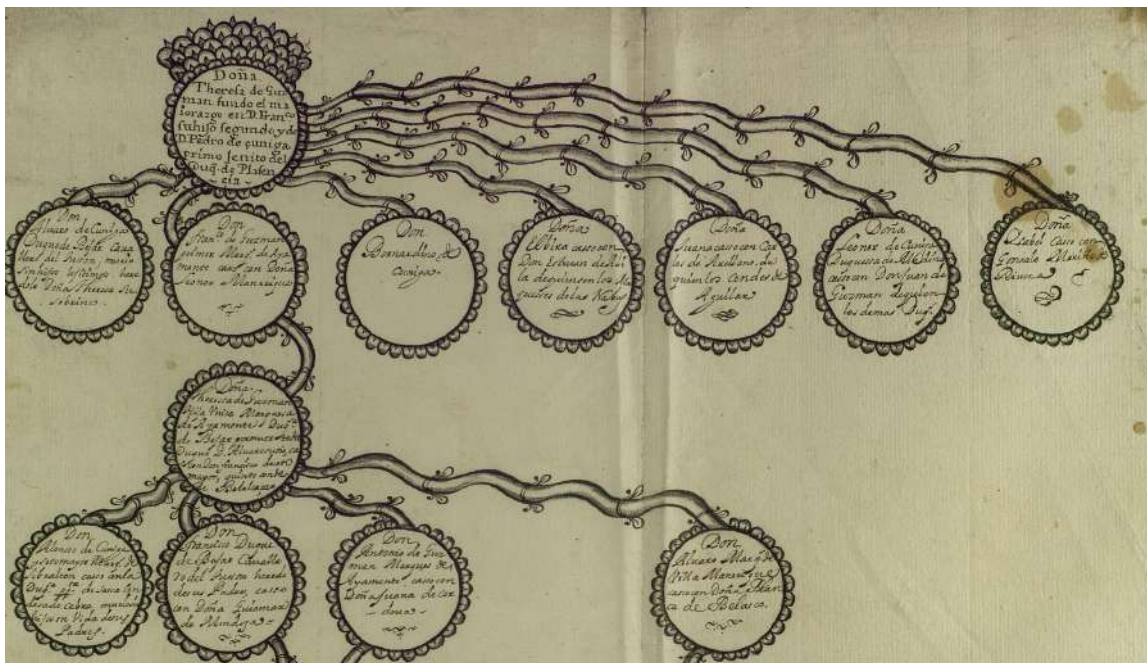 Doña
Theresa de Guz
man fundo el ma
iorazgo en D. Fran^co
su hijo segundo y de
D. Pedro de çuniga
primo jenito del
Duq. de Plasen
cia
Don
Alvaro de Cuniga
Duque de Bejar Cava
llero del tuson, murio
sin hijos lexitimos here
dole Doña Theresa su
sobrina
Don
Fran^co de Guzman
primer Marq. de Aya
monte caso con Doña
Leonor Manrrique
Don
Bernardino de
Cuniga
Doña
Elvira caso con
Don Esteuan de Aui
la de quien son los Ma
rqueses de las Nabas
Doña
Juana caso con Car
los de Arellano, de
quien los Condes de
Aguilar
Doña
Leonor de Cuniga
Duquesa de
caso con Don Juan de
Guzman de quien
los demas Duq.
Doña
Isabel caso con
Gonzalo Mariño de
Rivera
Doña
Theressa de Guzman
hija Vnica Marquesa
de Ayamonte Duq.
de Bejar por muerte del
Duque D. Alvaro su tio, ca
so con Don françisco de soto
mayor, quinto conde
de Belalcaçar
Don
Alonso de Cuniga
y sotomayor Marq. de
Gibraleon caso con la
Duq. de Sesa Con
desa de Cabra, murio sin
hijos en Vida de sus
Padres
Don
Françisco Duque
de Bejar Cavalle
ro del tuson heredo
de sus Padres, caso
con Doña Guiomar
de Mendoza
Don
Antonio de Guz
man Marques de
Ayamonte caso con
Doña Juana de Cor
dova
Don
Alvaro Marq. de
Villa Manrrique
caso con Doña Blan
ca de Belasco